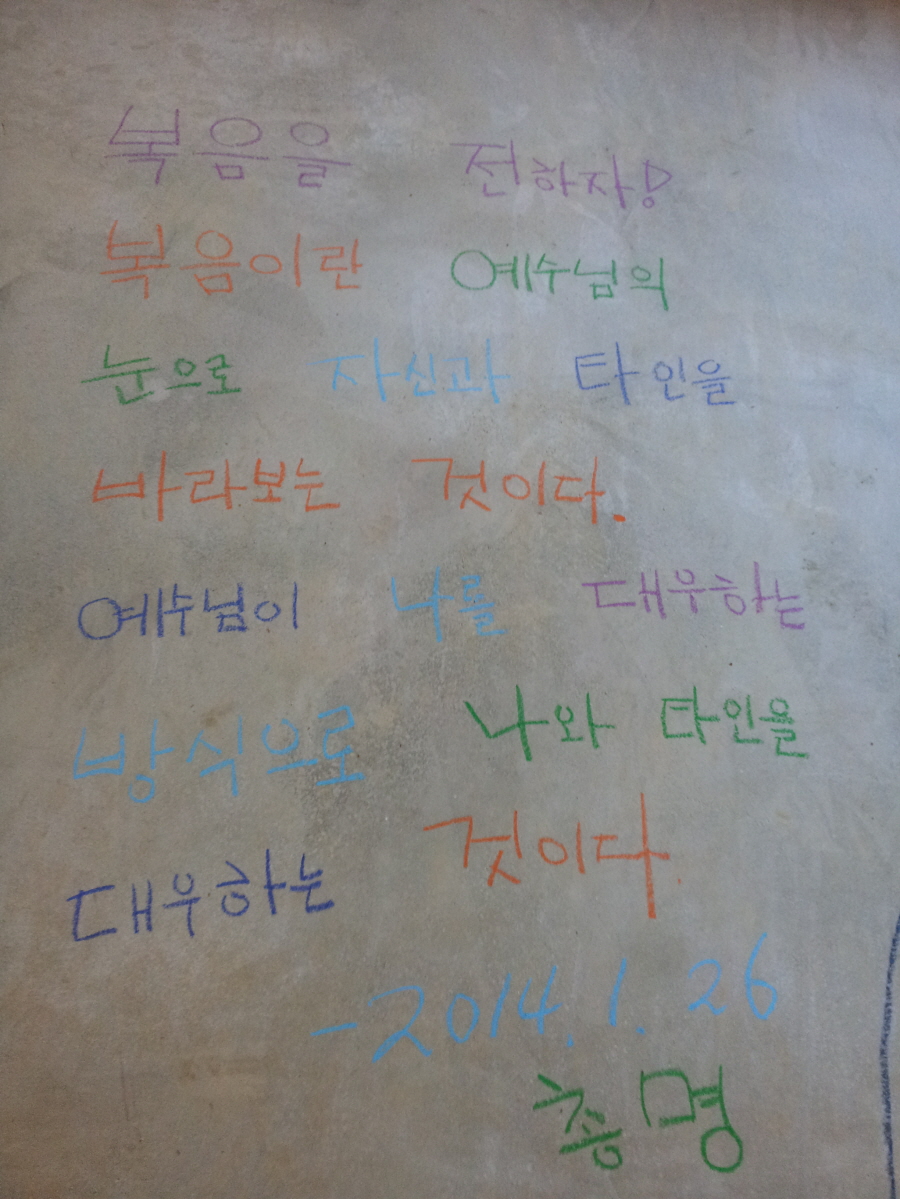 복음을 전하자!
복음이란 예수님의
눈으로 자신과 타인을
바라보는 것이다.
예수님이 나를 대우하는
방식으로 나와 타인을
대우하는 것이다.
-2014. 1. 26
총명